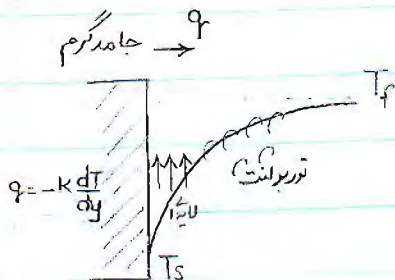 جامد گرم → q
T_f
توربولانت
q = -K dT/dy
لایه ای
T_s